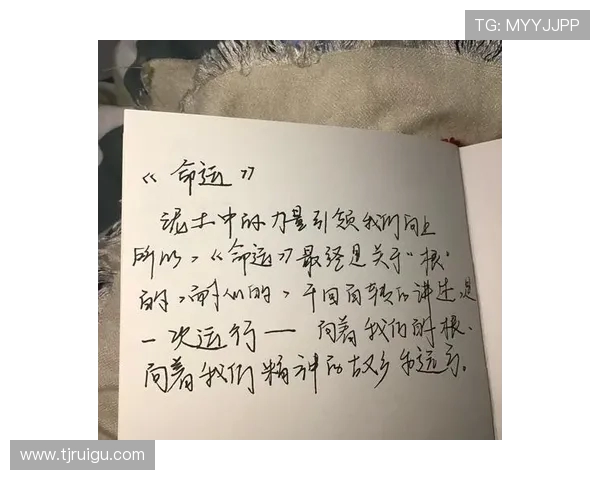 TG: MYYJJPP
《命运》
泥土中的力量引领我们向上
所以,《命运》最终是关于“根”
的,耐人的,千回百转的讲述,是
一次运行—向着我们的根、
向着我们精神的故乡和远方。
www.tjruigu.com